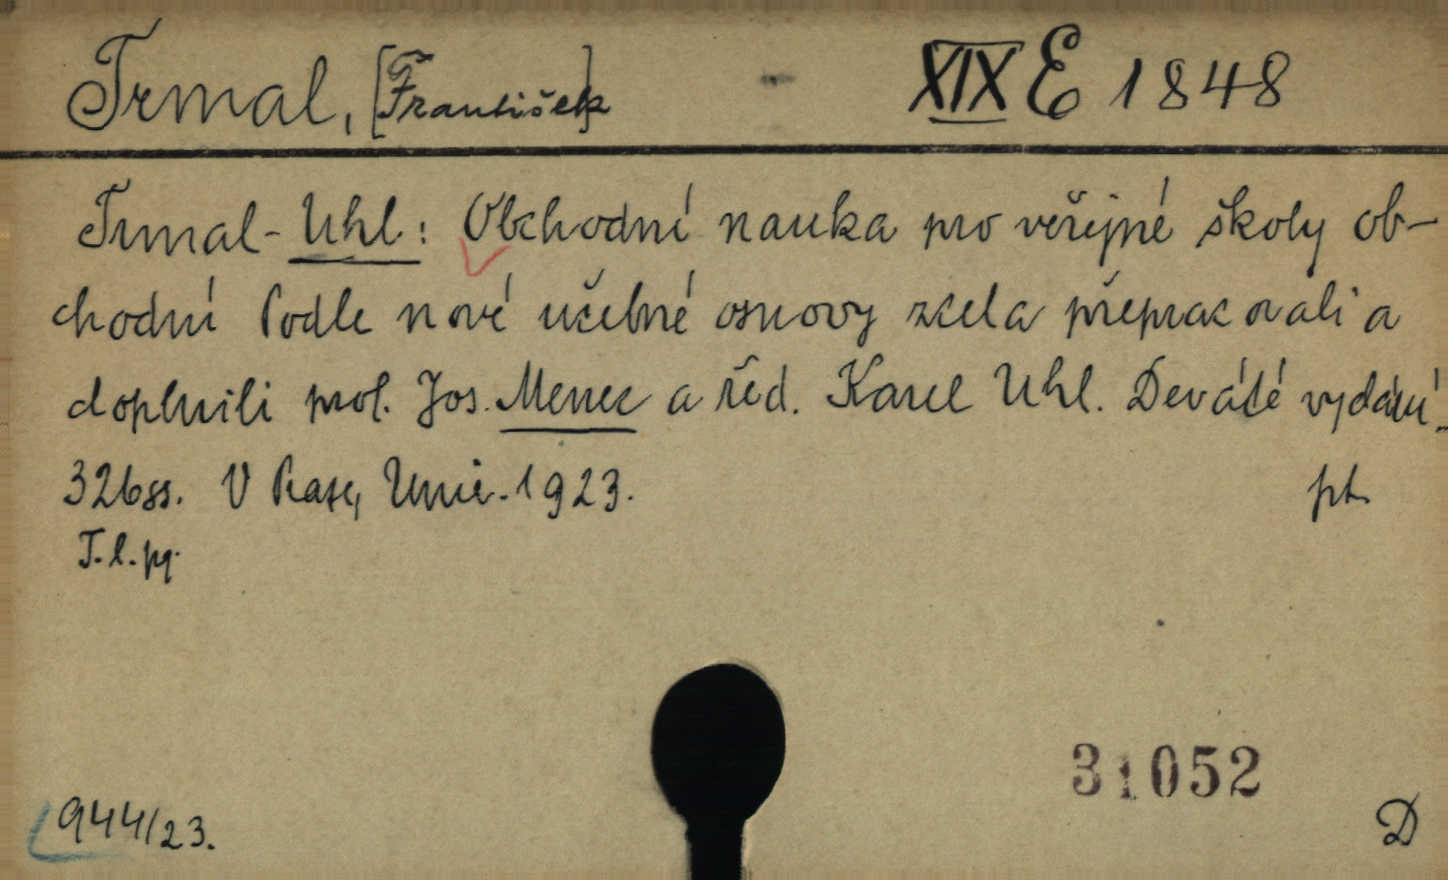 Trmal, [František] XIX E 1848
Trmal-Uhl: Obchodní nauka pro veřejné školy ob-
chodní Podle nové učebné osnovy zcela přepracovali a
doplnili prof. Jos. Menec a řed. Karel Uhl. Deváté vydání.
326 ss. V Praze, Unie. 1923. pt.
T. l. pq.
31052
944/23. D